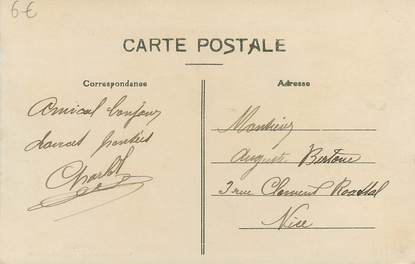 6€
CARTE POSTALE
Correspondance
Amical bonjour
douces pensées
Charlot
Adresse
Monsieur
Auguste Bertone
3 rue Clement Roassal
Nice